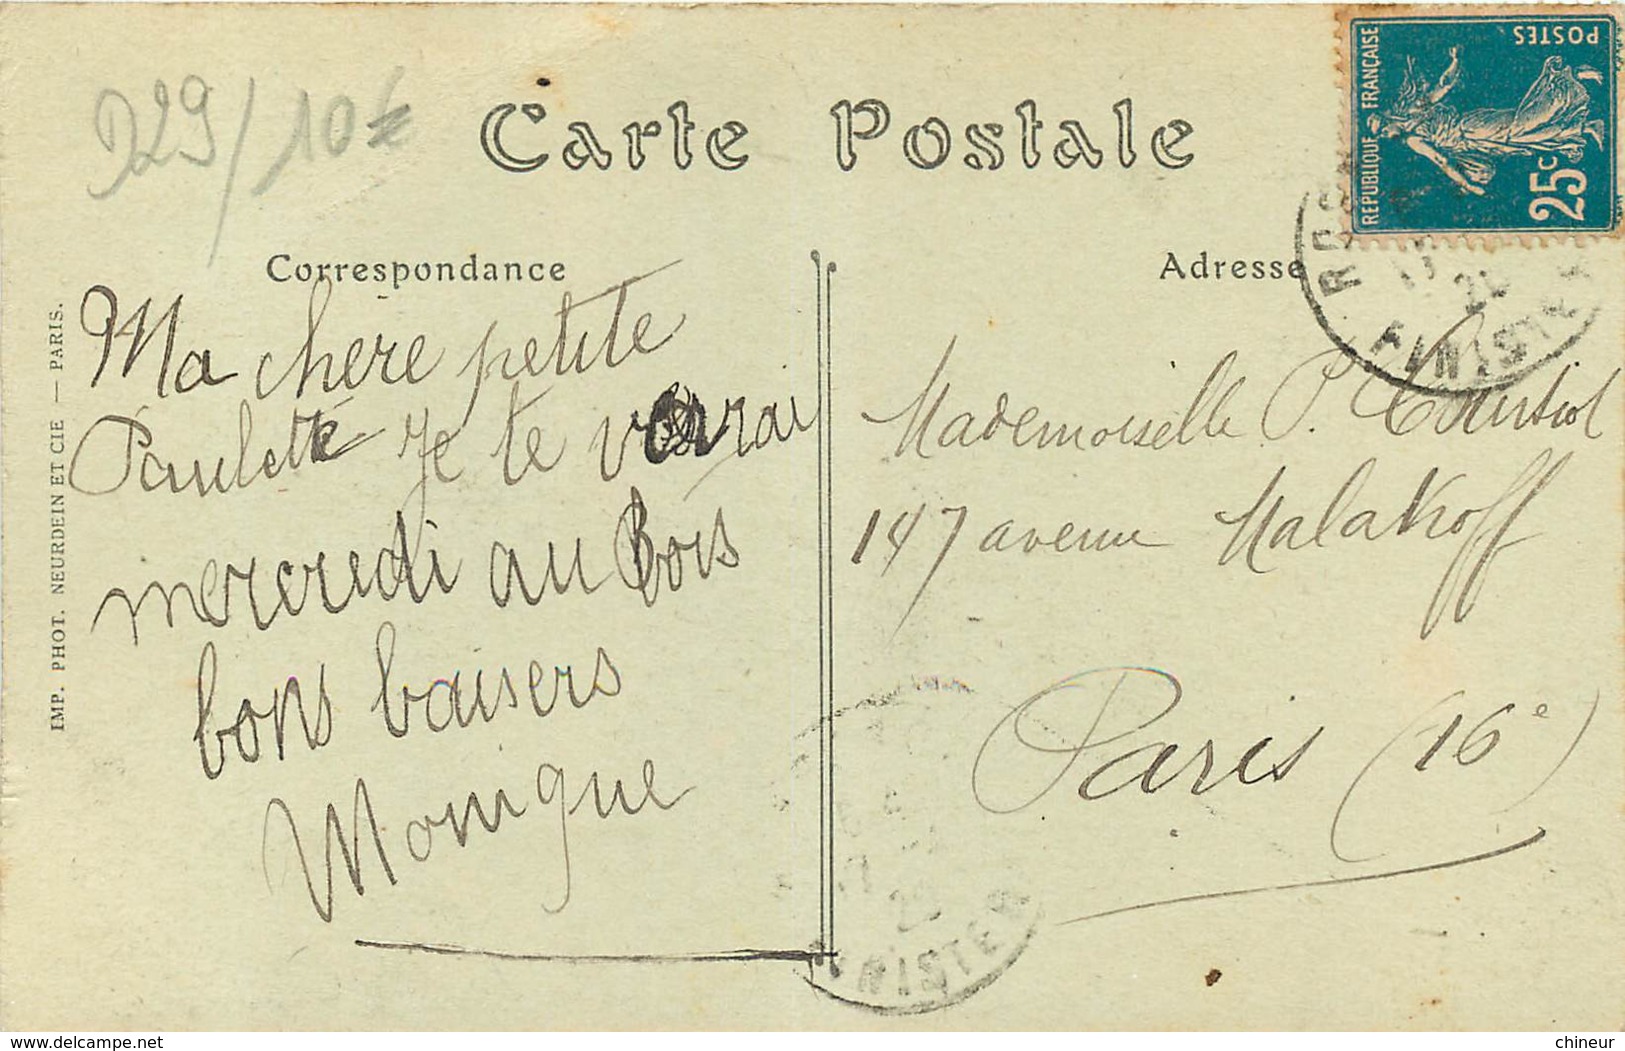 329/10€
Carte Postale
REPUBLIQUE FRANÇAISE
POSTES
25c
Correspondance
Adresse
FINISTER
Ma chère petite
Paulette Je te vorai
mercredi au Bois
bons baisers
Monique
Mademoiselle P.
147 avenue Malakoff
Paris (16e)
FINISTER
IMP. PHOT. NEURDEIN ET CIE — PARIS.
delcampe.net
chineur